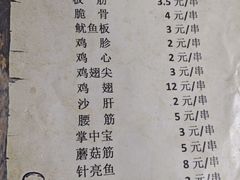 板 筋 3.5 元/串
脆 骨 4 元/串
鱿鱼板 3 元/串
鸡 胗 2 元/串
鸡 心 2 元/串
鸡翅尖 3 元/串
鸡 翅 12 元/串
沙 肝 2 元/串
腰 筋 5 元/串
掌中宝 3 元/串
蘑菇筋 5 元/串
针亮鱼 8 元/串
元/串